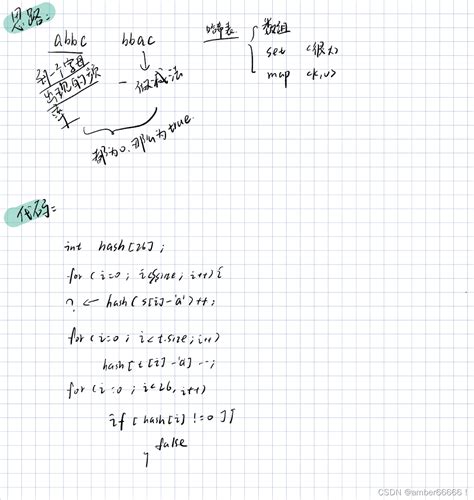 思路：
abbc bbac 哈希表 数组
set <很大>
map <k,v>
到一个字母
出现的频
率 - 做减法
都为0.那么为true.
代码：
int hash[26];
for (i=0; i<s.size; i++){
? ← hash(s[i]-'a')++;
for(i=0; i<t.size; i++)
hash[t[i]-'a]--;
for (i=0; i<26, i++)
if [hash[i] !=0]]
false
}
CSDN @amber66666！